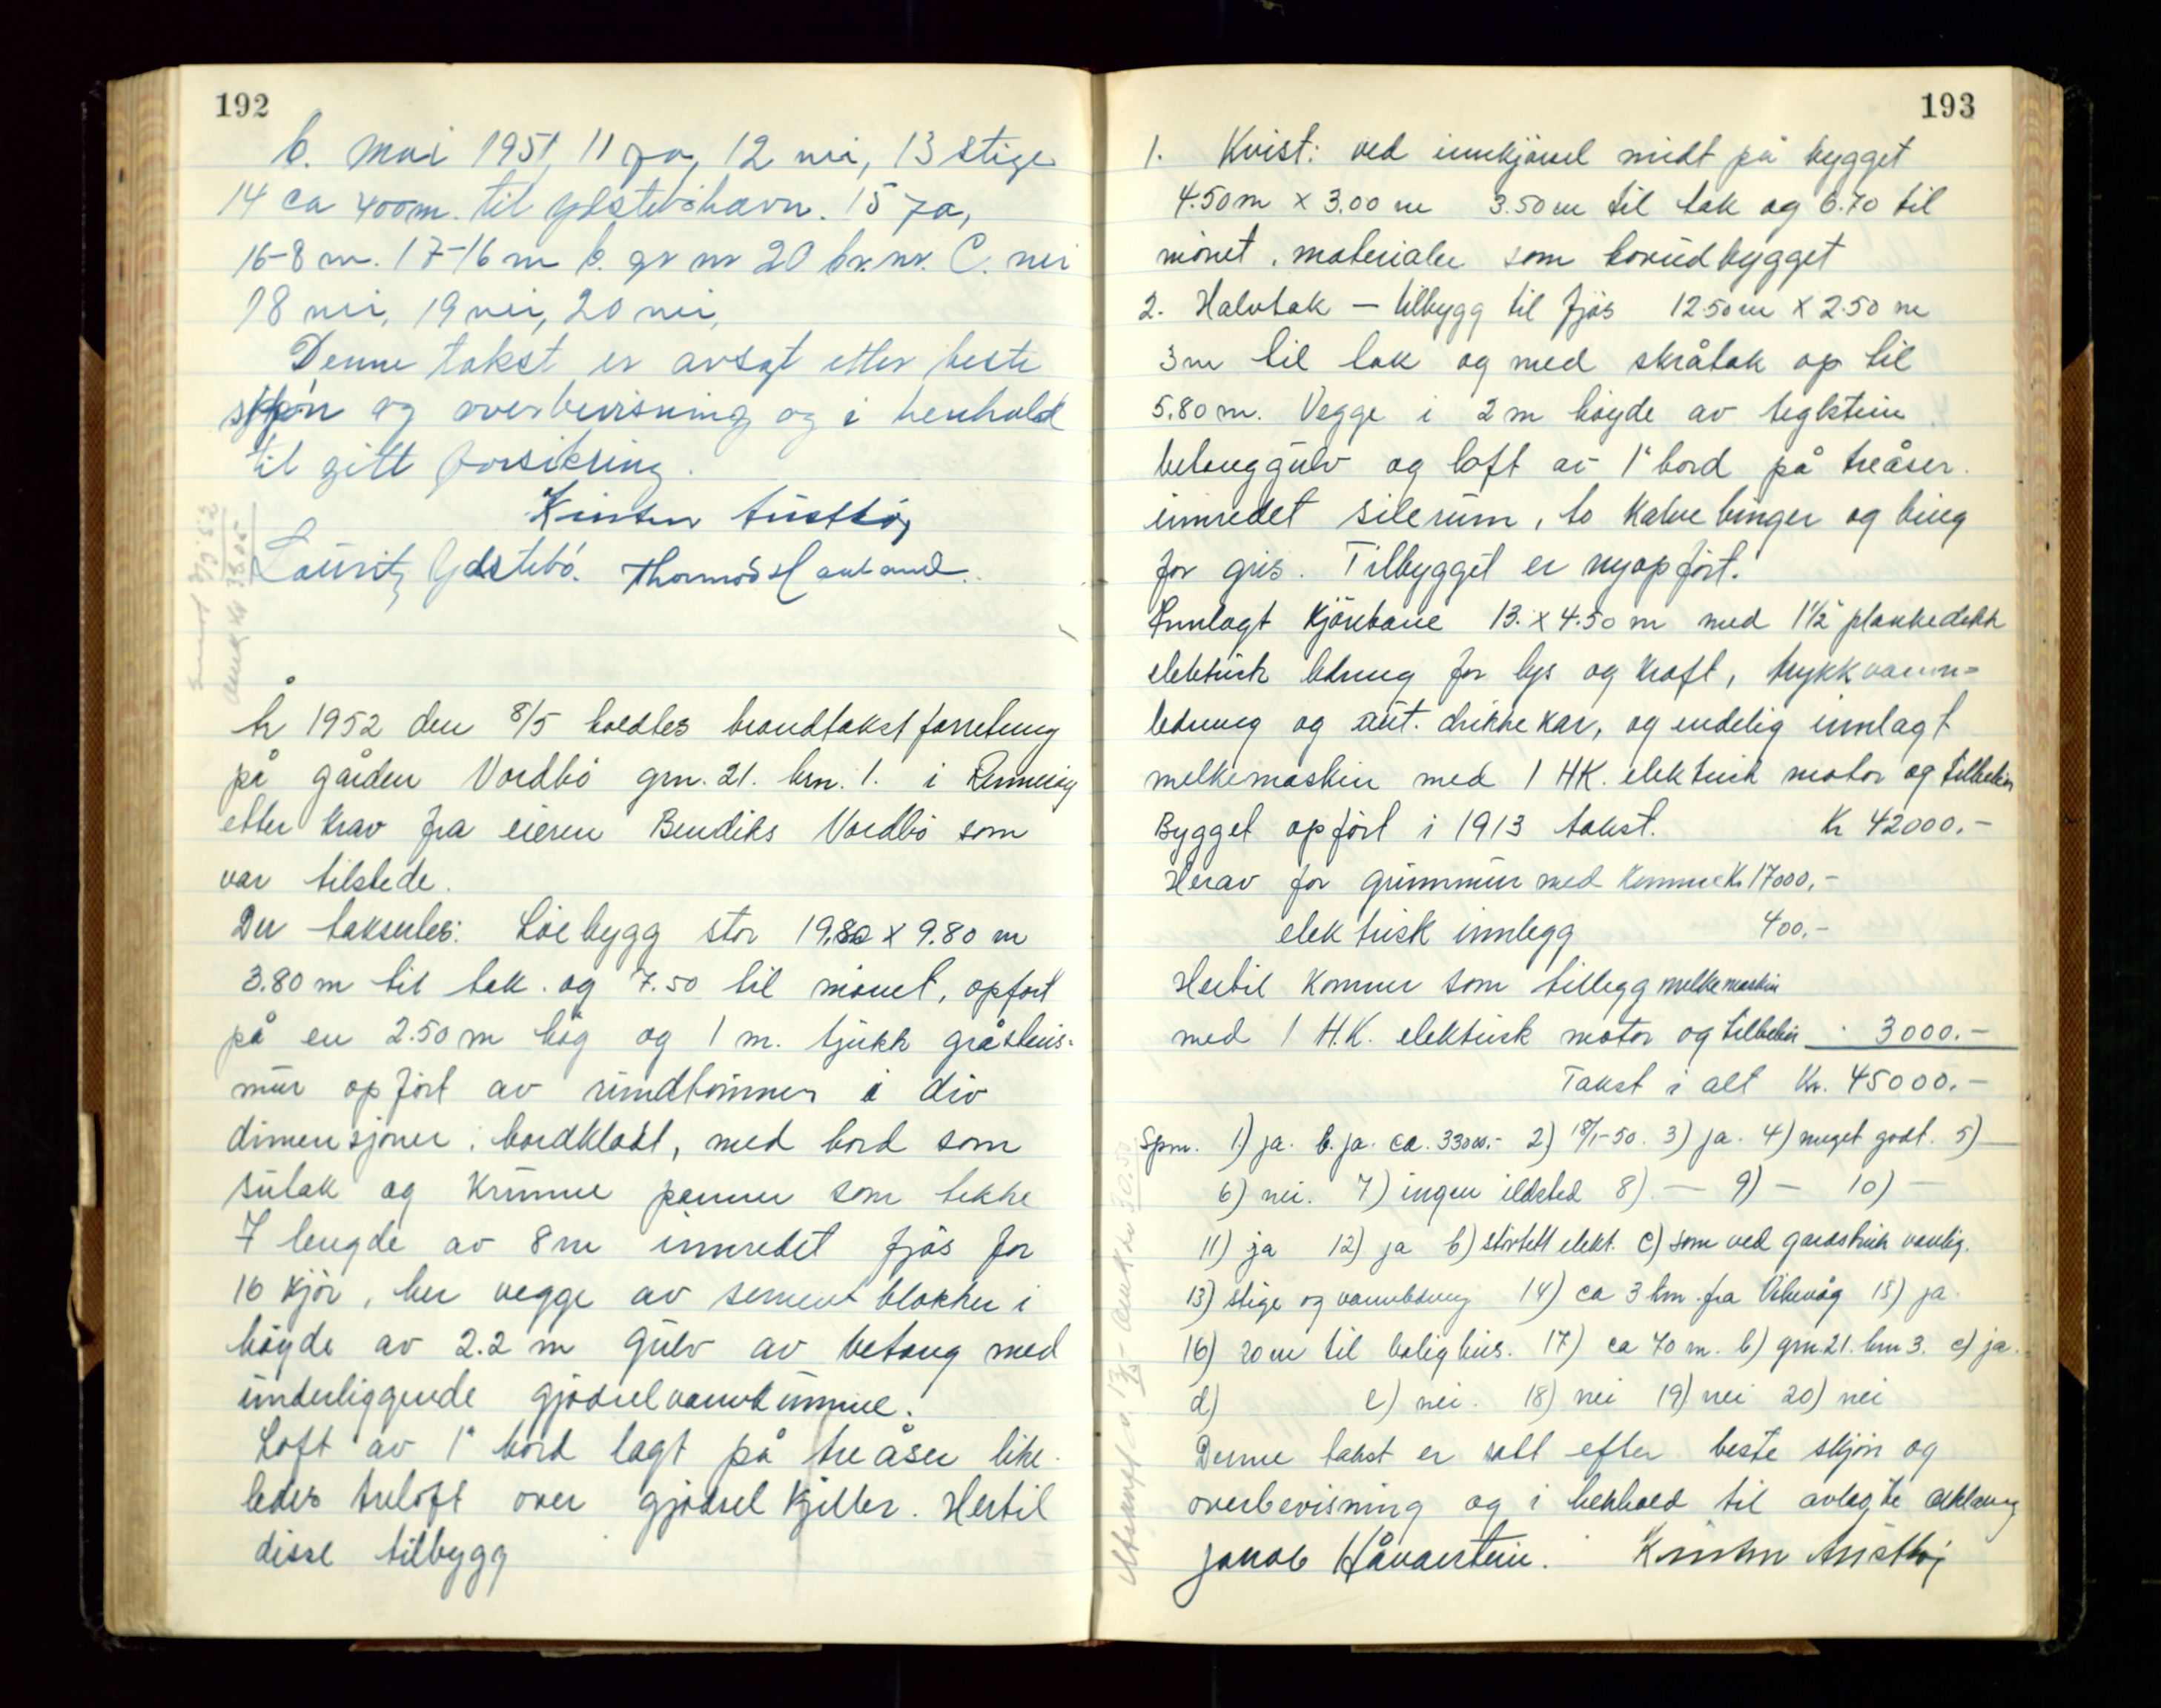 192
b. mai 1951, 11 ja, 12 nei, 13 stige
14 ca 400m. til Ydstebøhavn. 15 ja,
16-8 m. 17-16 m b. gr nr 20 br.nr. C. nei
18 nei, 19 nei, 20 nei,
Denne takst er avsagt etter beste
skjøn og overbevisning og i henhold
til gitt forsikring.
Kristen Austbø,
Lauritz Ydstebø. Thormod Hauland.
År 1952 den 8/5 holdtes brandtakstforretning
på gården Vordbö grn. 21. brn. 1. i Rennesøy
etter krav fra eieren Bendiks Vordbö som
var tilstede.
Der takseertes: Löebygg stor 19.80 x 9.80 m
3.80 m til tak. og 7.50 til mönet, opfört
på en 2.50 m hög og 1 m. tjukk gråsteins-
mur opfört av rundtömmer i div
dimensjoner. bordkledt, med bord som
sutak og krumme panner som tekke
7 lengde av 8 m innredet fjös for
16 kjör, her vegge av sement blokker i
höyde av 2.2 m Gulv av betong med
underliggende gjödselvannkumme.
Loft av 1" bord lagt på treåser like-
ledes treloft over gjödselkjeller. Hertil
disse tilbygg
193
1. Kvist: ved innkjörsel midt på bygget
4.50 m x 3.00 m 3.50 m til tak og 6.70 til
mönet. materialer som hovedbygget
2. Halvtak - tilbygg til fjös 12.50 m x 2.50 m
3 m til tak og med skråtak op til
5.80 m. Vegge i 2 m höyde av teglstein
betonggulv og loft av 1" bord på treåser.
innredet silerum, to kalvebinger og bing
for gris. Tilbygget er nyopfört.
Innlagt kjörebane 13. x 4.50 m med 1½" plankedekk
elektrisk ledning for lys og kraft, trykkvann-
ledning og aut. drikkekar, og endelig innlagt
melkemaskin med 1 HK. elektrisk motor og tilbehör
Bygget opfört i 1913 takst. Kr 42000.-
Herav for grunnmur med kumme Kr 17000,-
elektrisk innlegg 400.-
Hertil kommer som tillegg melkemaskin
med 1 H.K. elektrisk motor og tilbehör 3000.-
Takst i alt Kr. 45000.-
Spm. 1) ja. b. ja. ca. 33000.- 2) 18/1-50. 3) ja. 4) meget godt. 5) —
6) nei. 7) ingen ildsted 8) — 9) — 10) —
11) ja 12) ja b) störtett elekt. c) som ved gårdsbruk vanlig.
13) stige og vannledning 14) ca 3 km. fra Vikevåg 15) ja.
16) 20 m til bolighus. 17) ca 70 m. b) grn 21. brn 3. c) ja.
d) e) nei. 18) nei 19) nei 20) nei
Denne takst er satt efter beste skjön og
overbevisning og i henhold til avlagte erklæring
Jakob Håvarstein. Kristen Austbø,